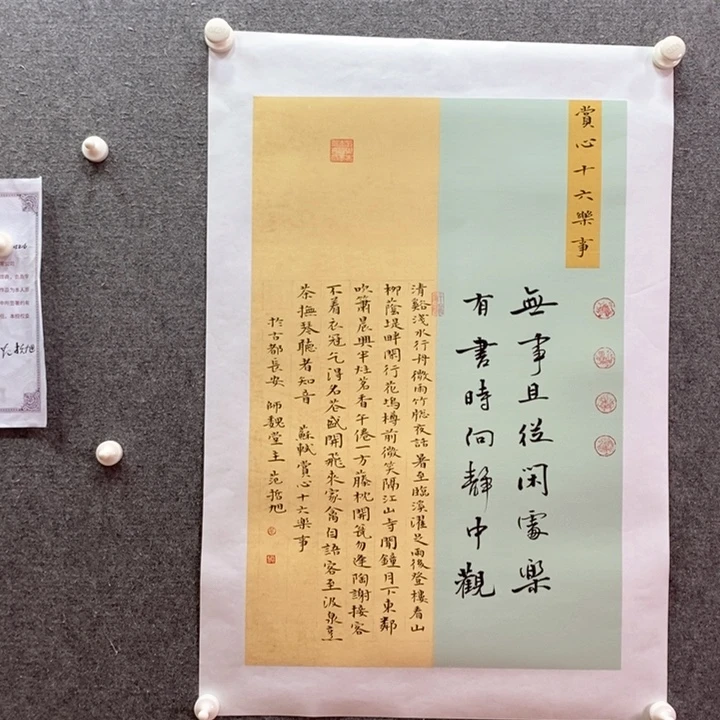 賞心十六樂事
無事且從閑處樂
有書時向靜中觀
清谿淺水行舟微雨竹牕夜話暑至臨溪濯足雨後登樓看山
柳蔭堤畔閑行花塢樽前微笑隔江山寺聞鐘月下東鄰
吹簫晨興半炷茗香午倦一方藤枕開甕勿逢陶謝接客
不着衣冠乞得名花盛開飛來家禽自語客至汲泉烹
茶撫琴聽者知音 蘇軾賞心十六樂事
於古都長安 師魏堂主 范哲旭